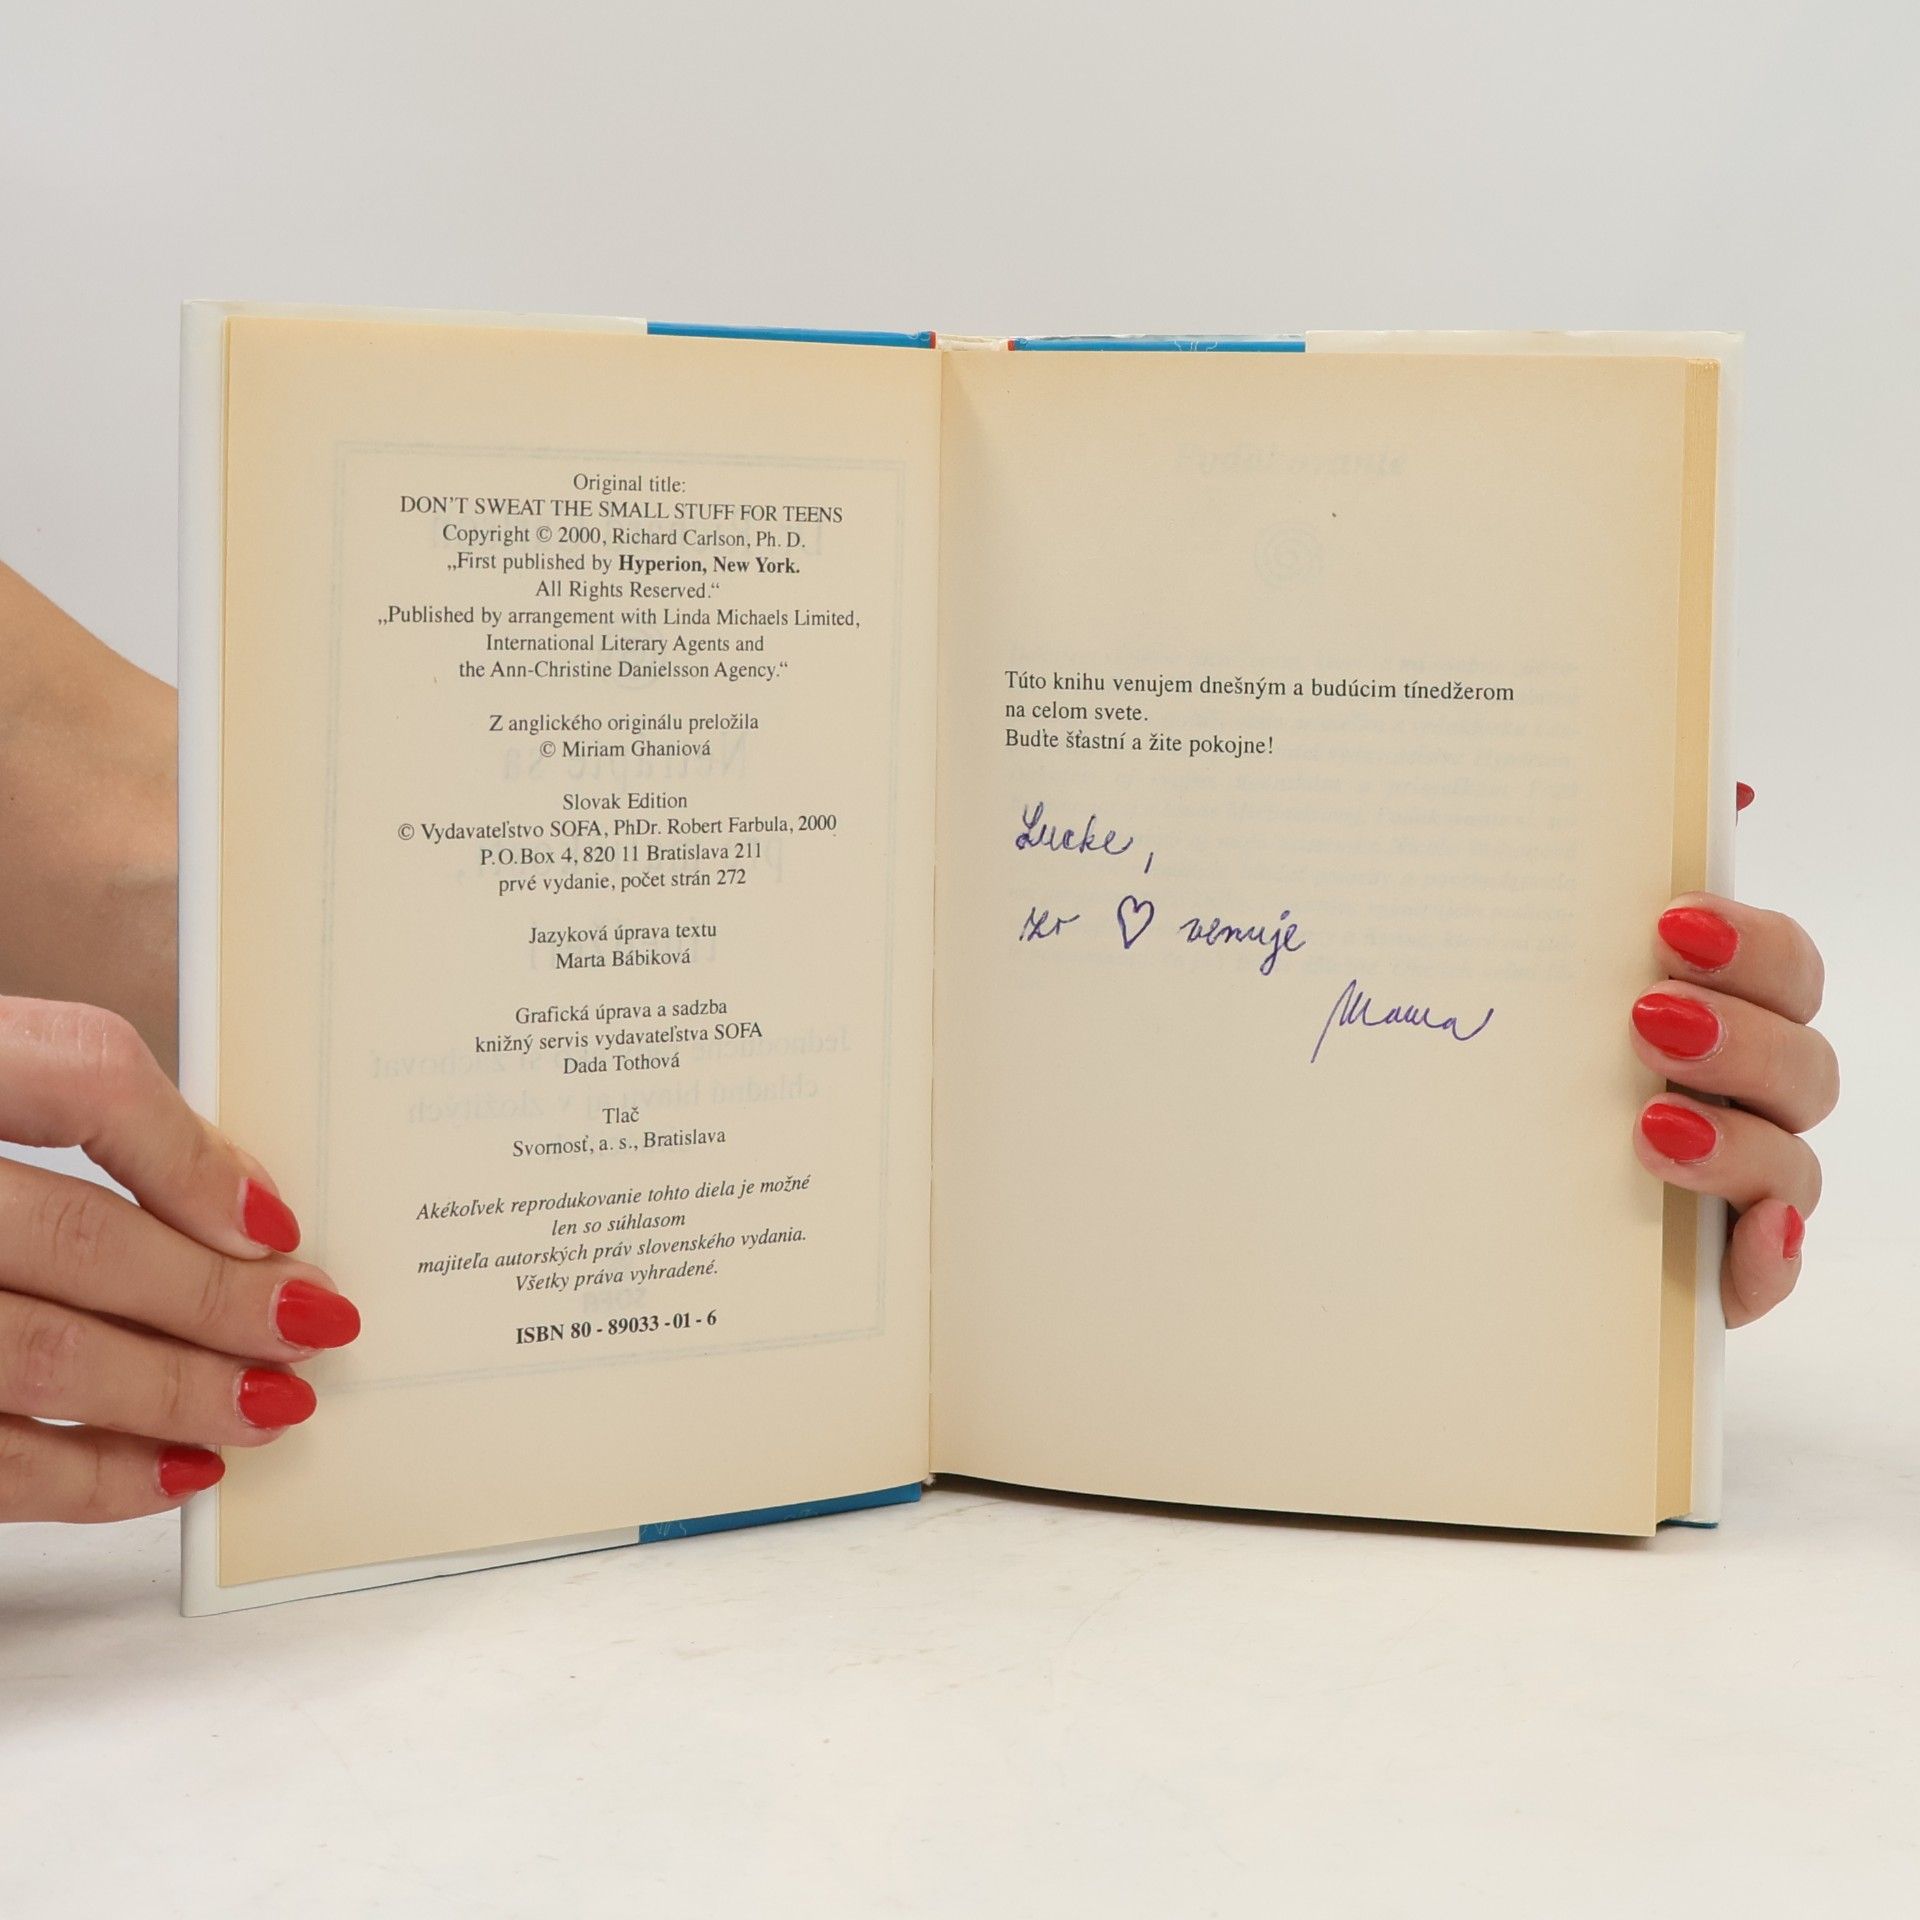 Original title:
DON'T SWEAT THE SMALL STUFF FOR TEENS
Copyright © 2000, Richard Carlson, Ph. D.
„First published by Hyperion, New York.
All Rights Reserved.“
„Published by arrangement with Linda Michaels Limited,
International Literary Agents and
the Ann-Christine Danielsson Agency.“
Z anglického originálu preložila
© Miriam Ghaniová
Slovak Edition
© Vydavateľstvo SOFA, PhDr. Robert Farbula, 2000
P.O.Box 4, 820 11 Bratislava 211
prvé vydanie, počet strán 272
Jazyková úprava textu
Marta Bábiková
Grafická úprava a sadzba
knižný servis vydavateľstva SOFA
Dada Tothová
Tlač
Svornosť, a. s., Bratislava
Akékoľvek reprodukovanie tohto diela je možné
len so súhlasom
majiteľa autorských práv slovenského vydania.
Všetky práva vyhradené.
ISBN 80 - 89033 -01 - 6
Túto knihu venujem dnešným a budúcim tínedžerom
na celom svete.
Buďte šťastní a žite pokojne!
Lucke,
zo ♡ venuje
Mama